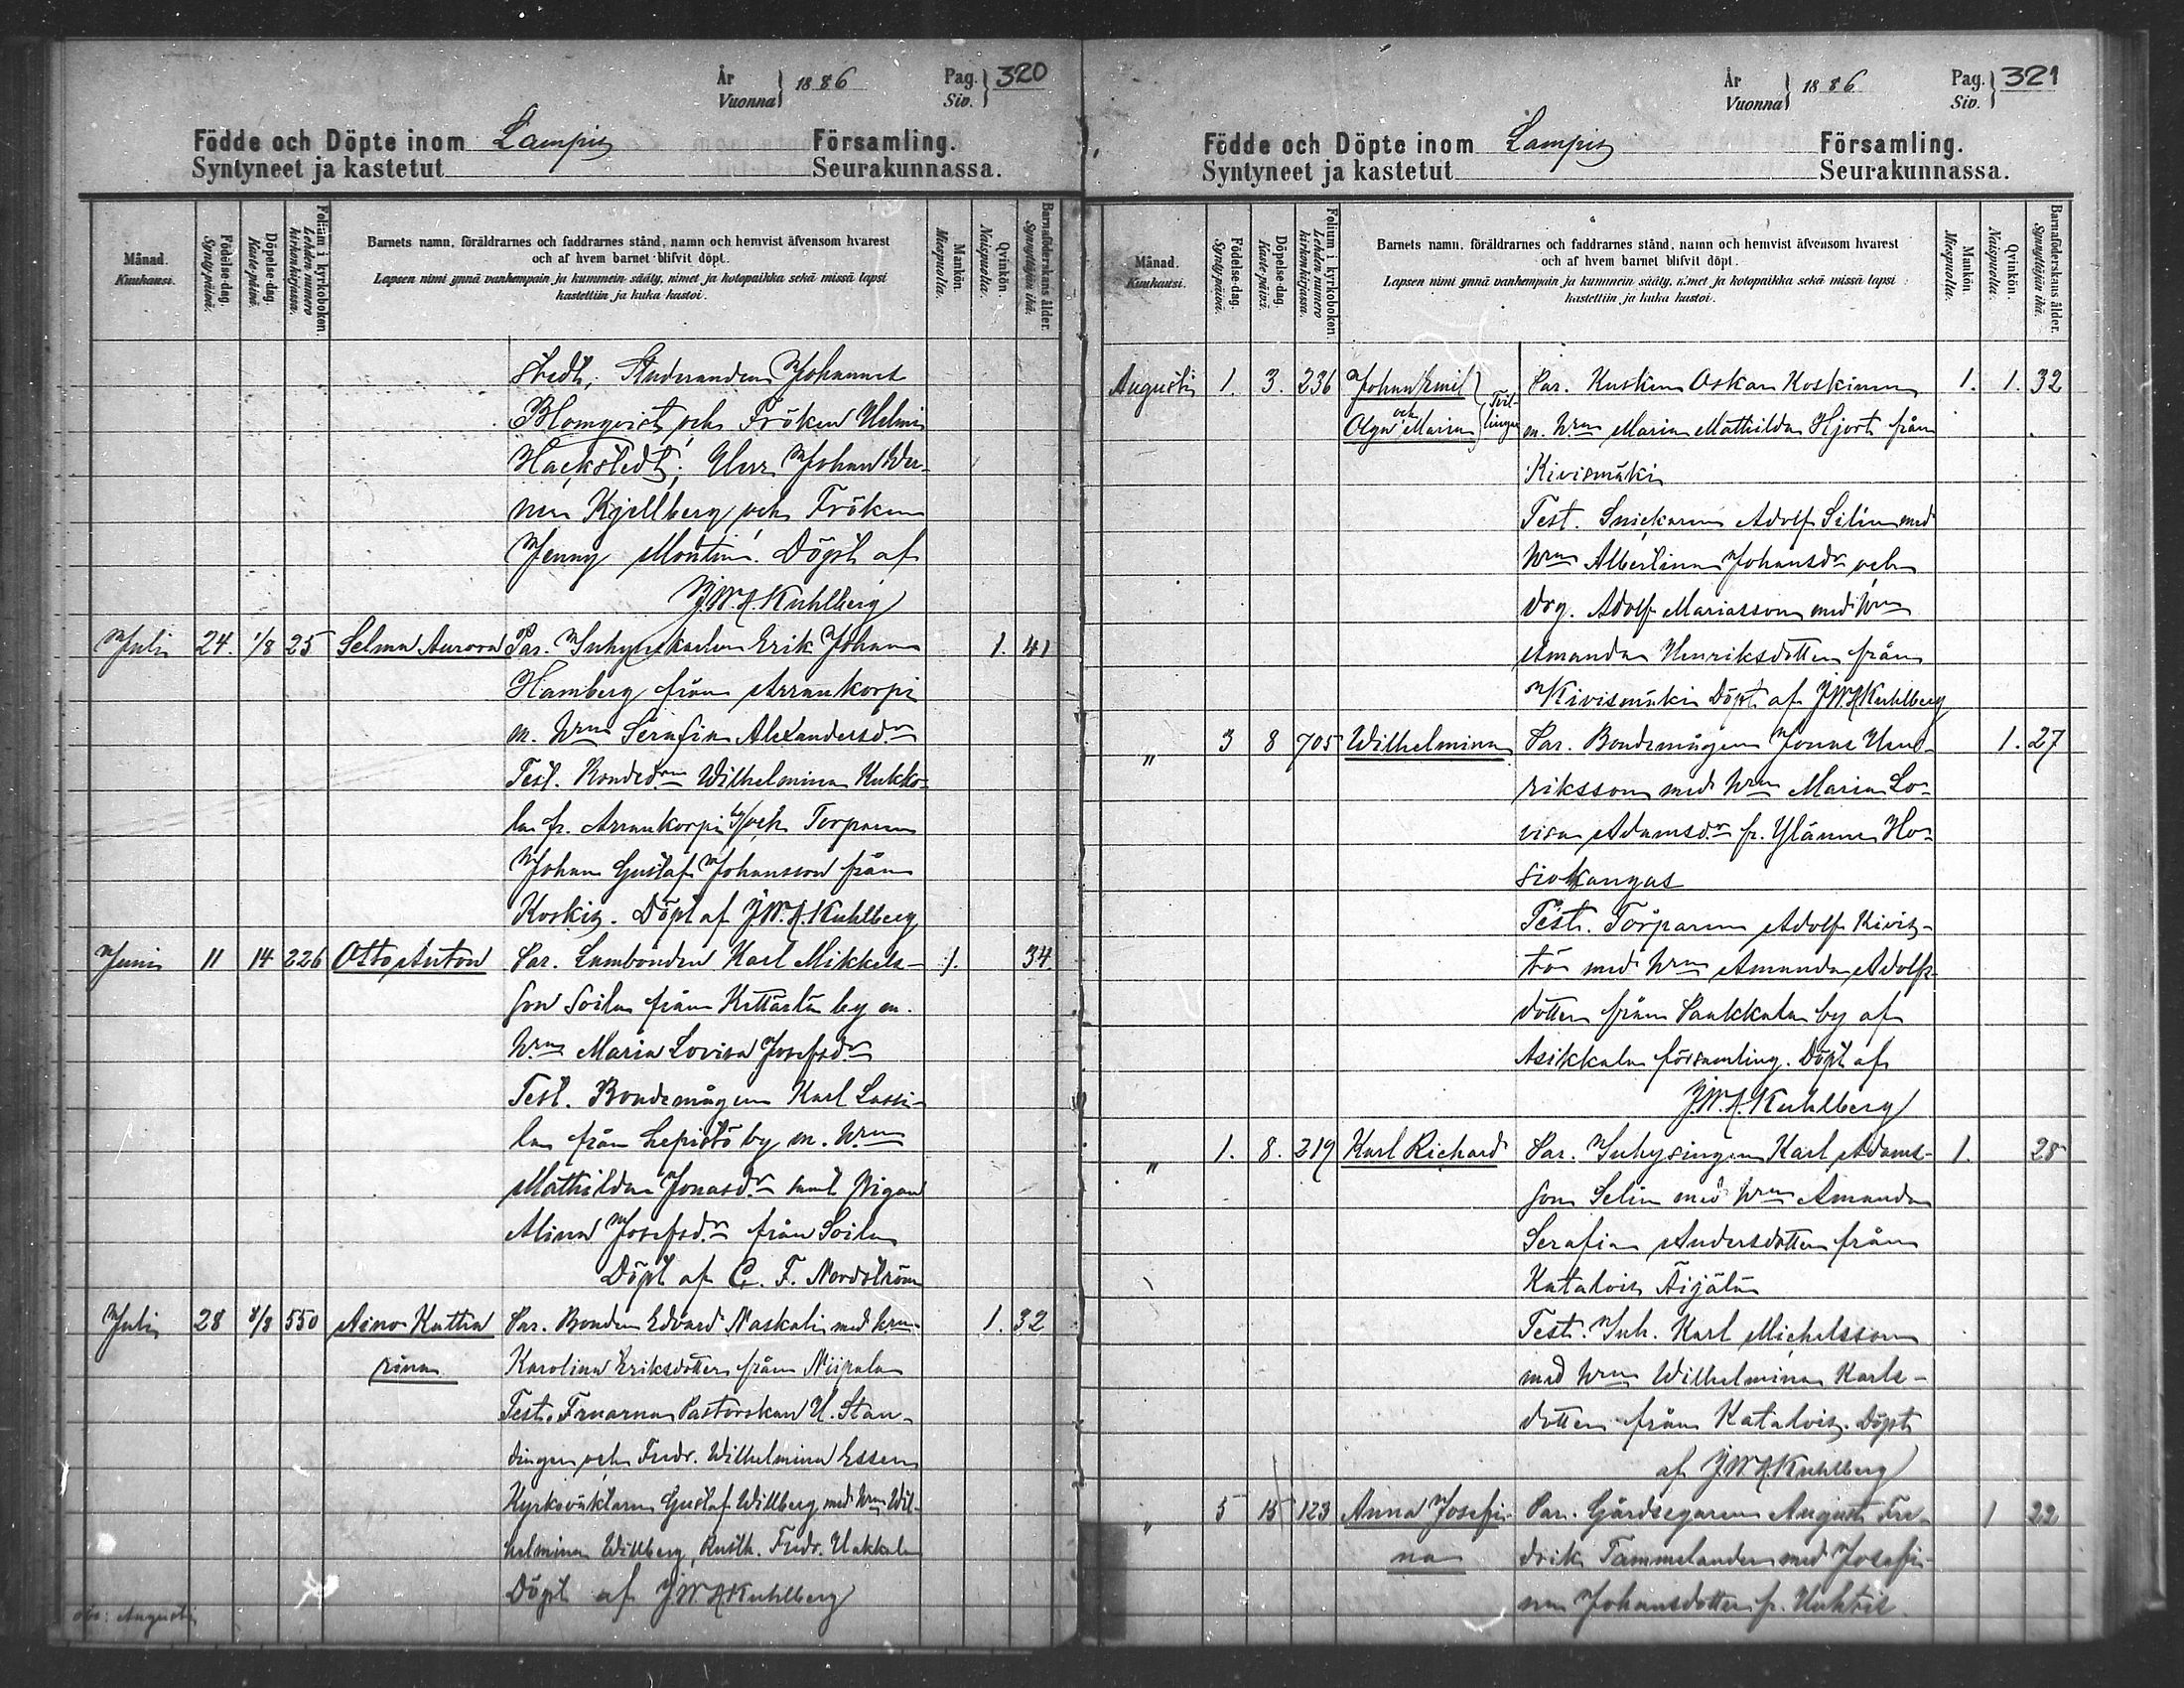 År
Vuonna } 1886
Pag.
Siv. } 320
Födde och Döpte inom Lampis Församling.
Syntyneet ja kastetut Seurakunnassa.
Månad.
Kuukausi.
Födelse-dag.
Syntypäivä.
Döpelse-dag.
Kastepäivä.
Folium i kyrkoboken.
Lehden numero kirkonkirjassa.
Barnets namn, föräldrarnes och faddrarnes stånd, namn och hemvist äfvensom hvarest
och af hvem barnet blifvit döpt.
Lapsen nimi ynnä vanhempain ja kummein sääty, nimet ja kotopaikka sekä missä lapsi
kastettiin ja kuka kastoi.
Mankön.
Miespuolia.
Qvinkön.
Naispuolia.
Barnaföderskans ålder.
Synnyttäjän ikä.
stedt, Studeranden Johannes
Blomqvist och Fröken Helmi
Hackstedt; Herr Johan Wer-
ner Kjellberg och Fröken
Jenny Montin. Döpt af
J.W.A. Kuhlberg
Juli 24. 1/8 25 Selma Aurora Par. Inhyseskarlen Erik Johan 1. 41
Hamberg från Arrankorpi
m. hrun Serafia Alexandersdr
Test. Bondedrn Wilhelmina Kukko-
la fr. Arrankorpi by och Torparen
Johan Gustaf Johansson från
Koskis. Döpt af J.W.A. Kuhlberg
Juni 11 14 226 Otto Anton Par. Lambonden Karl Mikkels- 1. 34
son Soila från Kettärlä by m.
hrun Maria Lovisa Josefsdr
Test. Bondemågen Karl Lassi-
la från Lepistö by m. hrun
Mathilda Jonasdr samt Pigan
Alina Josefsdr från Soila
Döpt af C. F. Nordström
Juli 28 8/8 550 Aino Kattra Par. Bonden Edvard Naskali med hrun 1. 32
rina Karolina Eriksdotter från Niipala
Test. Fruarna Pastorskan H. Stan-
dinger och Fredr. Wilhelmina Essen
Kyrkoväktaren Gustaf Willberg med hrun Wil-
helmina Willberg, Fredr. Hakkala
Döpt af J.W.A. Kuhlberg
Augusti
År
Vuonna } 1886
Pag.
Siv. } 321
Födde och Döpte inom Lampis Församling.
Syntyneet ja kastetut Seurakunnassa.
Månad.
Kuukausi.
Födelse-dag.
Syntypäivä.
Döpelse-dag.
Kastepäivä.
Folium i kyrkoboken.
Lehden numero kirkonkirjassa.
Barnets namn, föräldrarnes och faddrarnes stånd, namn och hemvist äfvensom hvarest
och af hvem barnet blifvit döpt.
Lapsen nimi ynnä vanhempain ja kummein sääty, nimet ja kotopaikka sekä missä lapsi
kastettiin ja kuka kastoi.
Mankön.
Miespuolia.
Qvinkön.
Naispuolia.
Barnaföderskans ålder.
Synnyttäjän ikä.
Augusti 1. 3. 236 Johan Emil Par. Kusken Oskar Koskinen 1. 1. 32
och Olga Maria } Tvil-lingar m. hrun Maria Mathilda Hjort från
Kivismäki
Test. Snickaren Adolf Silin med
hrun Albertina Johansdr och
Drg. Adolf Mariasson med hrun
Amanda Henriksdotter från
Kivismäki Döpt af J.W.A. Kuhlberg
" 3 8 705 Wilhelmina Par. Bondemågen Jonas Hen- 1. 27
riksson med hrun Maria Lo-
visa Adamsdr fr. Ylänne Ho-
siokangas
Test. Torparen Adolf Kivis-
tö med hrun Amanda Adolfs-
dotter från Paakkala by af
Asikkala församling. Döpt af
J.W.A. Kuhlberg
" 1. 8. 219 Karl Richard Par. Inhysingen Karl Adams- 1. 28
son Selin med hrun Amanda
Serafia Andersdotter från
Katalois Äijälä
Test. Inh. Karl Michelsson
med hrun Wilhelmina Karls-
dotter från Katalois. Döpt
af J.W.A. Kuhlberg
" 5 15 123 Anna Josefi- Par. Gårdsegaren August Fre- 1 22
na drik Tammelander med Josefi-
na Johansdotter fr. Huhtis